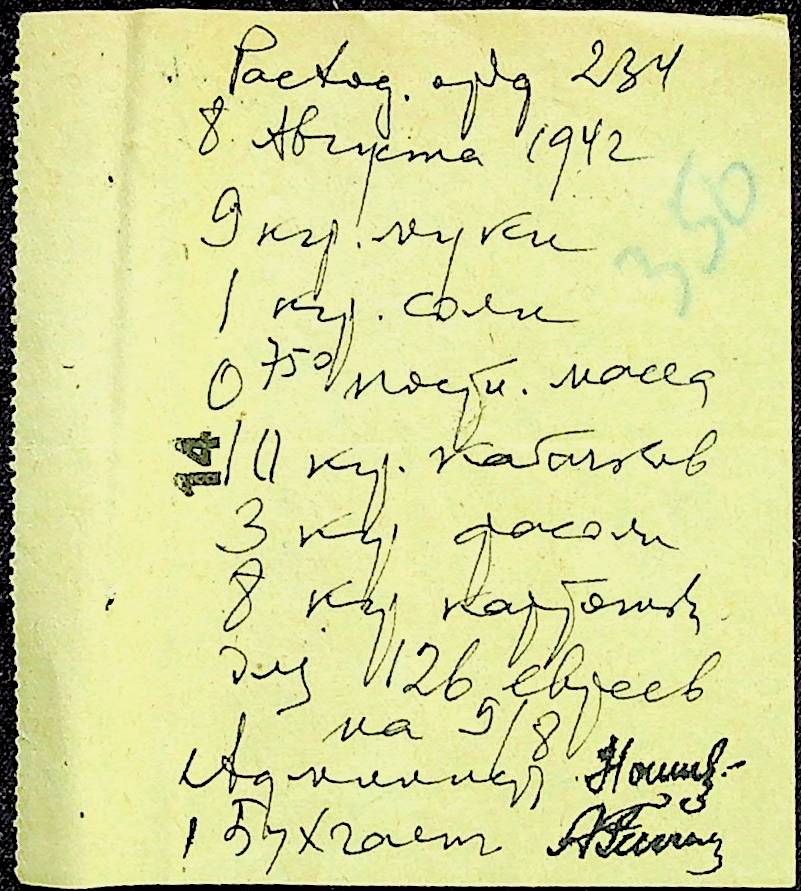 Расход. орд 234
8 Августа 1942
350
9 кгр. муки
1 кгр. соли
0 750 постн. масла
14
10 кгр. кабачков
3 кгр фасоли
8 кгр картошки
для 126 евреев
на 9/8
Администр
Бухгалт